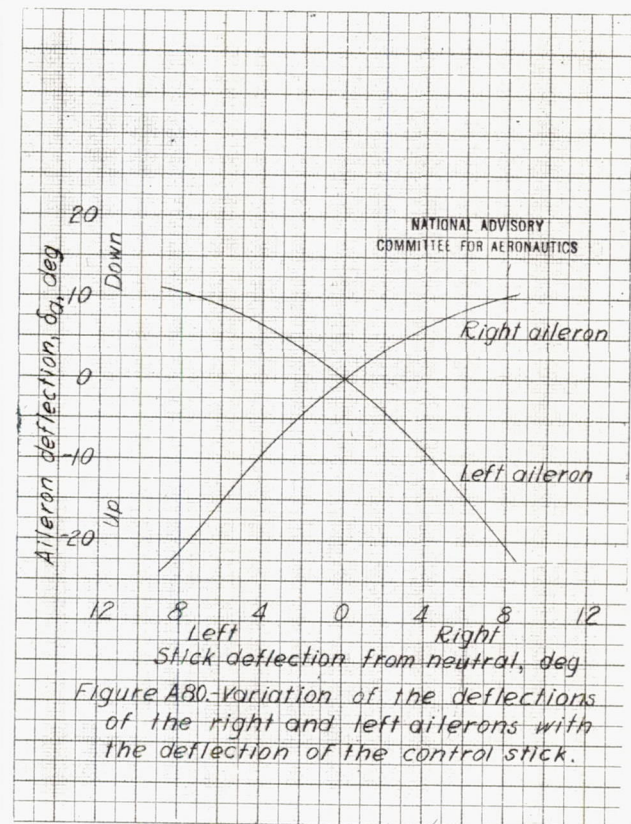 20
NATIONAL ADVISORY
COMMITTEE FOR AERONAUTICS
Down
Aileron deflection, δa, deg
10
Right aileron
0
-10
Left aileron
Up
-20
12 8 4 0 4 8 12
Left Right
Stick deflection from neutral, deg
Figure A80.-Variation of the deflections
of the right and left ailerons with
the deflection of the control stick.